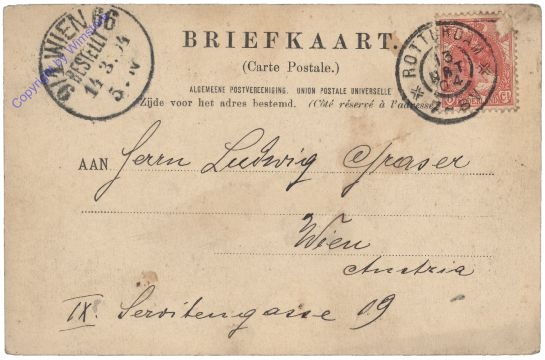 BRIEFKAART.
(Carte Postale.)
ALGEMEENE POSTVEREENIGING. UNION POSTALE UNIVERSELLE
Zijde voor het adres bestemd. (Côté réservé à l'adresse)
WIEN 66
BESTELLT
14.3.04
ROTTERDAM
13
MRT
04
Copyright by
AAN Herrn Ludwig Graser
Wien
Austria
IX. Servitengasse 09